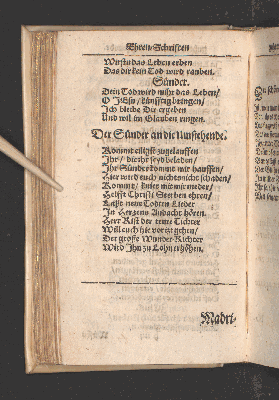 Ehren-Schrifften
Wirstu das Leben erben
Das dir kein Tod wird rauben.
Sünder.
Dein Tod wird mihr das Leben/
O JEsu/ künfftig bringen/
Ich bleibe Dir ergeben
Und wil im Glauben ringen.
Der Sünder an die Umstehende.
Kommt eiligst zugelauffen
Ihr/ die ihr seyd beladen/
Ihr Sünder kommt mit hauffen/
Hier wird euch nichts nicht schaden/
Kommt/ kniet mit mir nieder/
Helfft Christi Sterben ehren/
Last neue Todten Lieder
In Herzens Andacht hören.
Herr Rist der teure Tichter
Will euch hie vorher gehen/
Der grosse Wunder-Richter
Wird Jhn zu Lohn erhöhen.
Madri-